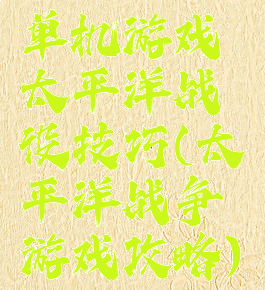 单机游戏
太平洋战
役技巧(太
平洋战争
游戏攻略)